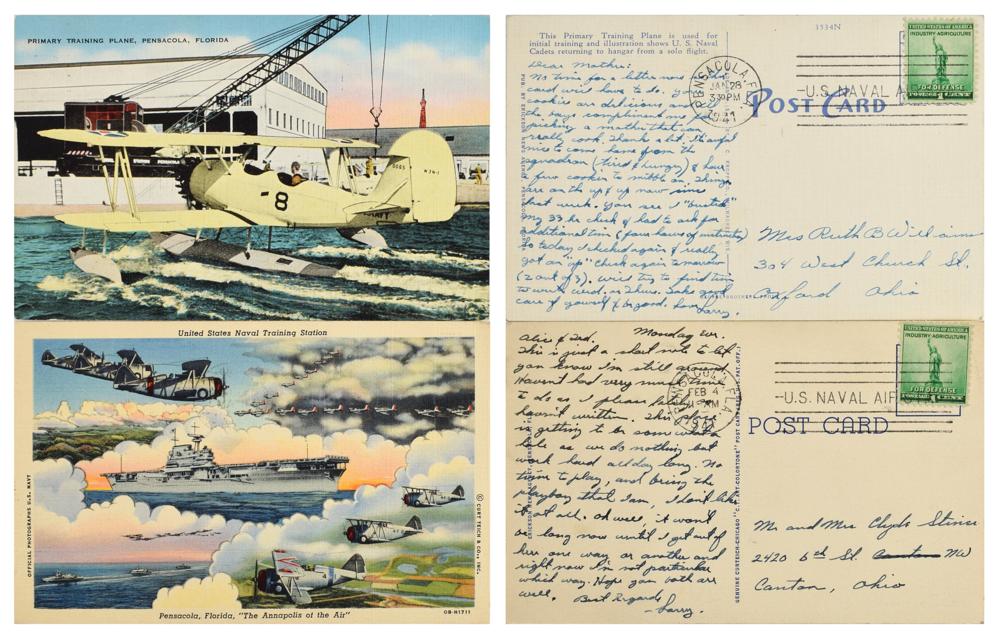 PRIMARY TRAINING PLANE, PENSACOLA, FLORIDA
8
NAVY
0085
N3N-1
3534N
This Primary Training Plane is used for
initial training and illustration shows U. S. Naval
Cadets returning to hangar from a solo flight.
PENSACOLA, FLA.
JAN 28
3 30 PM
1941
U.S. NAVAL A
UNITED STATES OF AMERICA
INDUSTRY·AGRICULTURE
FOR DEFENSE
1 CENT
POST CARD
Dear Mother:
No time for a letter now
card will have to do. Your
cookies are delicious and
the boys compliment me for
picking a mother that can
really cook, thanks a lot. It's awful
nice to come home from the
squadron (tired & hungry) & have
a few cookies to nibble on. Things
are on the up & up now since
last week. You see I "busted"
my 33 hr check & had to ask for
additional time (four hours of instruction)
so today I checked again & really
got an "up" check again tomorrow
(2 out of 3). Will try to find time
to write wed. or Thurs. Take good
care of yourself & be good. Love
Larry.
Mrs Ruth B Williams
304 West Church St.
Oxford Ohio
United States Naval Training Station
OFFICIAL PHOTOGRAPHS U.S. NAVY
© CURT TEICH & CO., INC.
Pensacola, Florida, "The Annapolis of the Air"
OB-H1711
FEB 4
AM
1941
U.S. NAVAL AIR
UNITED STATES OF AMERICA
INDUSTRY·AGRICULTURE
FOR DEFENSE
1 CENT
POST CARD
GENUINE CURTEICH-CHICAGO "C.T. ART-COLORTONE" POST CARD (REG. U.S. PAT. OFF.)
Monday Eve.
Alice & Zed.
This is just a short note to let
you know I'm still around.
Haven't had very much time
to do as I please lately so
haven't written. This place
is getting to be somewhat a
bore as we do nothing but
work hard all day long. No
time to play, and being the
playboy that I am, I don't like
it at all. Oh well, it won't
be long now until I get out of
here one way or another and
right now I'm not particular
which way. Hope you both are
well. Best Regards
Larry.
Mr. and Mrs Clyde Stiner
2420 6th St. Canton NW
Canton, Ohio